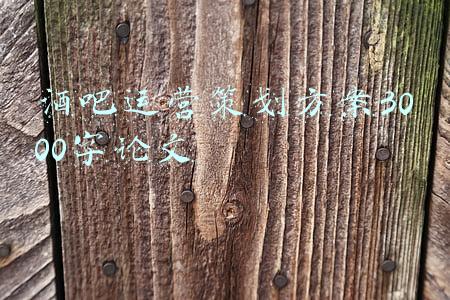 酒吧运营策划方案30
00字论文